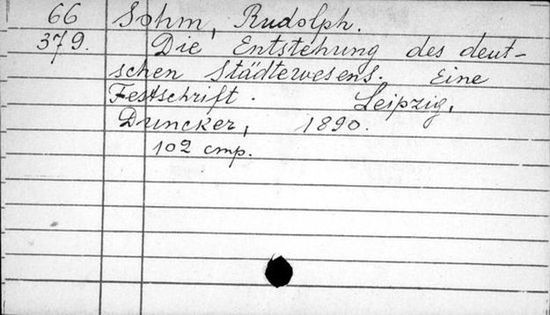 66 Sohm, Rudolph.
379. Die Entstehung des deut-
schen Städtewesens. Eine
Festschrift. Leipzig,
Duncker, 1890.
102 стр.